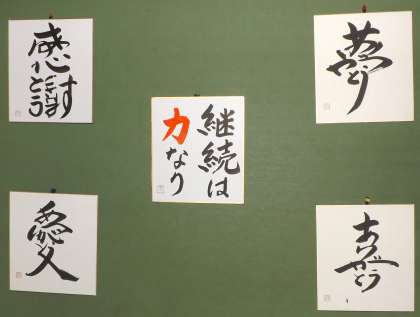 感謝
夢
継続は
力なり
愛
喜